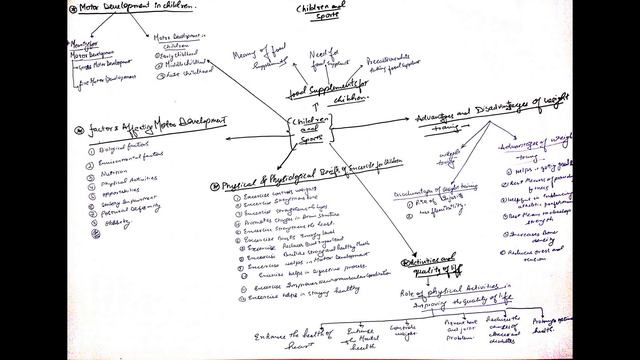 Motor Development in children.
Children and
Sports
Motor Development
Gross Motor Development
Fine Motor Development
Motor Development in
Children
Early childhood
Middle childhood
Late childhood
Meaning of food
Supplements
Need for
food supplement
Precautions while
taking food supplement
Food Supplements for
children.
Children
and
Sports
Factors Affecting Motor Development
① Biological factors
② Environmental factors
③ Nutrition
④ Physical Activities
⑤ opportunities
⑥ Sensory Impairment
⑦ Postural deformity
⑧ Obesity
Advantages and Disadvantages of weight
training
weight
training
Disadvantages of weight training
① Risk of Injury
② Inflexibility.
Advantages of weight
training
① Helps
② Best Means of
③ Helpful in
④ Best Means to develop
strength
⑤ Increases bone
density
⑥ Reduces stress and
tension
Physical & Physiological Benefits of Exercise for Children
① Exercise controls weight
② Exercise Strengthens bone
③ Exercise strengthens
④ Promotes changes in Brain structure
Exercise strengthens the heart.
Exercise Boosts energy level
Exercise Reduces
Exercise strong and healthy
Exercise helps in Motor Development
Exercise helps in Digestive process.
Exercise Improves Neuromuscular Coordination
Exercise helps in staying healthy
Activities and
quality of life
Role of physical Activities in
Improving the quality of life
Enhances the health of
heart
Enhances
Mental
health
Controls
weight
Prevent bone
and joint
Problem
Reduces the
chances of
and
diabetes
Promotes
health.